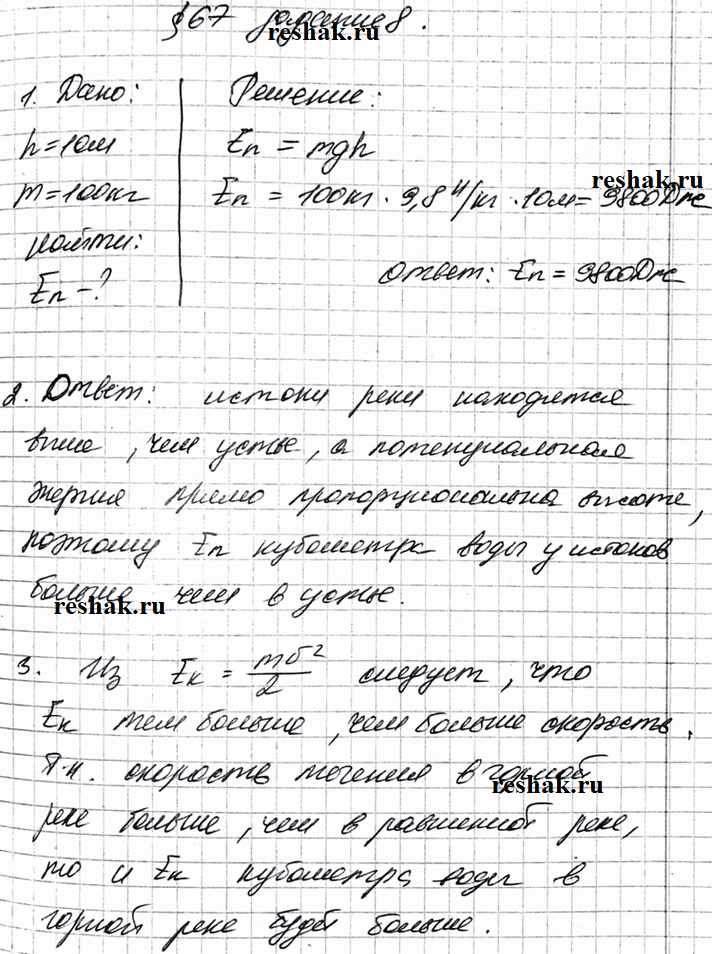 §67 задание 8.
reshak.ru
1. Дано:
h=10м
m=100кг
найти:
Eп -?
Решение:
Eп = mgh
reshak.ru
Eп = 100кг · 9,8 Н/кг · 10м = 9800Дж
Ответ: Eп = 9800Дж
2. Ответ: истоки реки находятся
выше, чем устье, а потенциальная
энергия прямо пропорциональна высоте,
поэтому Eп кубометра воды у истоков
больше чем в устье.
reshak.ru
3. Из Eк = mυ²/2 следует, что
Eк тем больше, чем больше скорость.
Т.к. скорость течения в горной
reshak.ru
реке больше, чем в равнинной реке,
то и Eк кубометра воды в
горной реке будет больше.